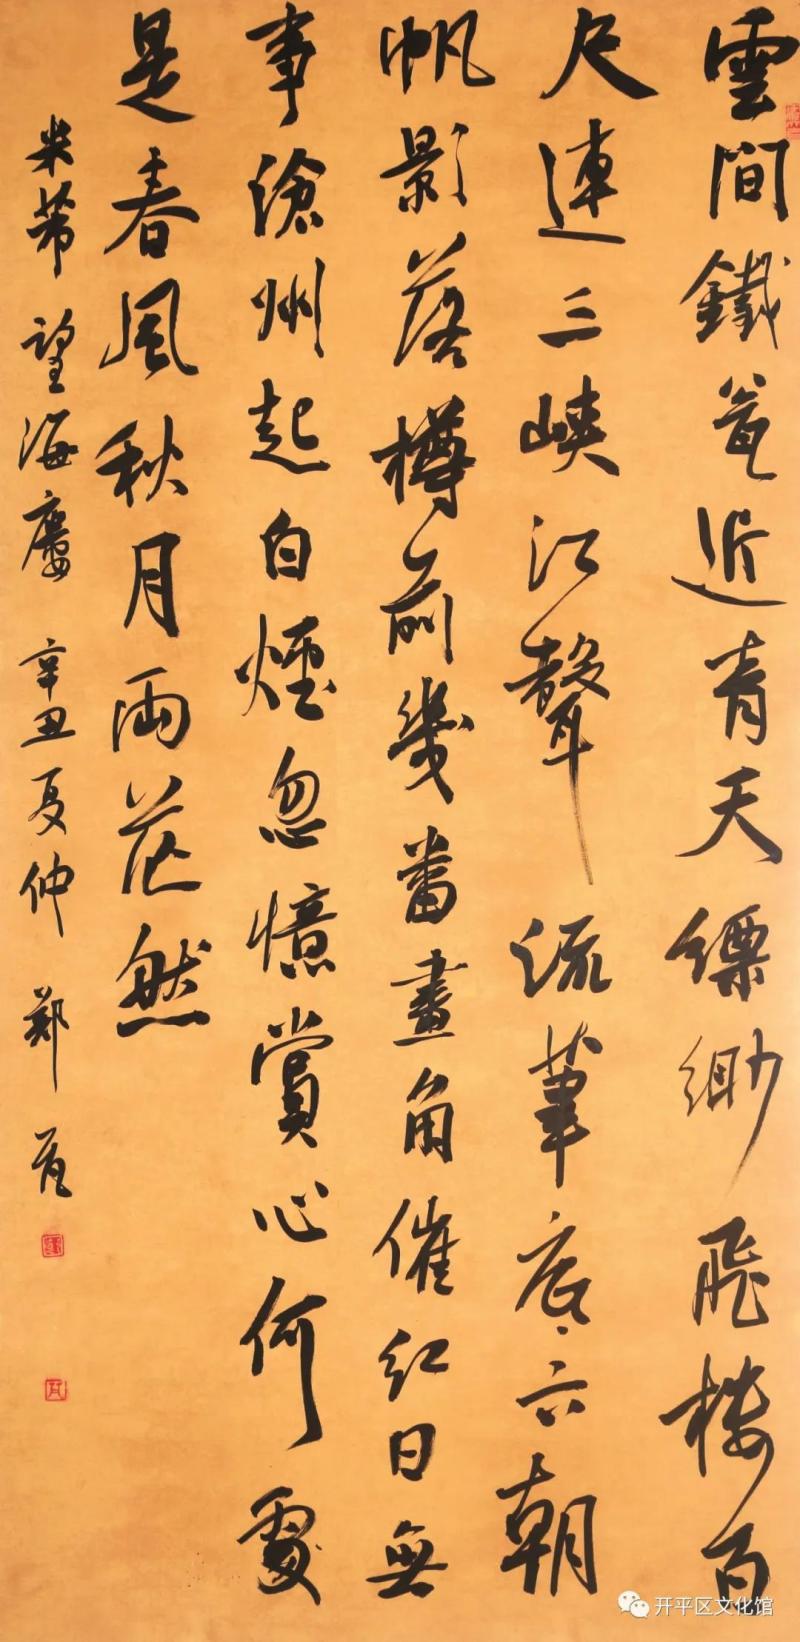 雲間鐵瓮近青天縹緲飛樓百
尺連三峽江聲流筆底六朝
帆影落樽前幾番畫角催紅日無
事滄州起白煙忽憶賞心何處
是春風秋月兩茫然
米芾望海廔 辛丑夏仲 鄭
开平区文化馆